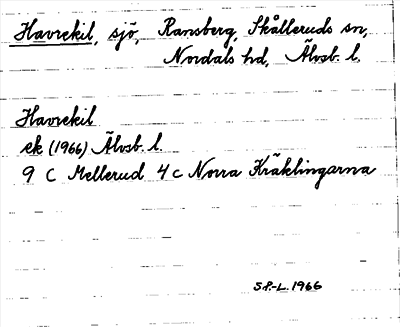 Havrekil, sjö, Ransberg, Skålleruds sn,
Nordals hd, Älvsb. l.
Havrekil
ek (1966) Älvsb. l.
9 C Mellerud 4 c Norra Kräklingarna
S.P.-L. 1966